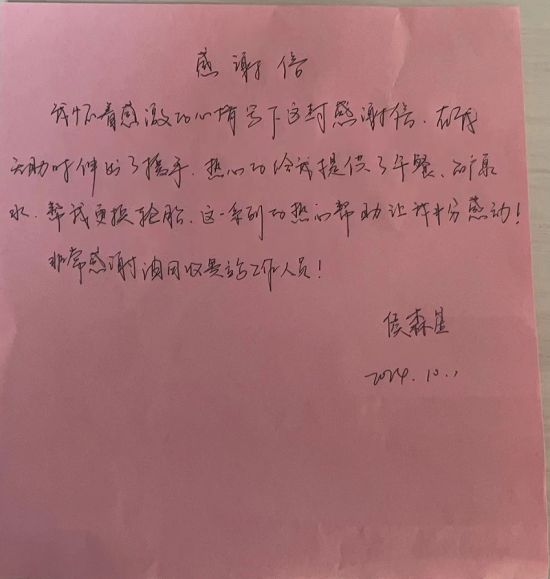 感谢信
我怀着感激的心情写下这封感谢信。在我
无助时伸出了援手。热心的给我提供了午餐、矿泉
水。帮我更换轮胎。这一系列的热心帮助让我十分感动！
非常感谢油回收工作人员！
侯森
2024.10.1